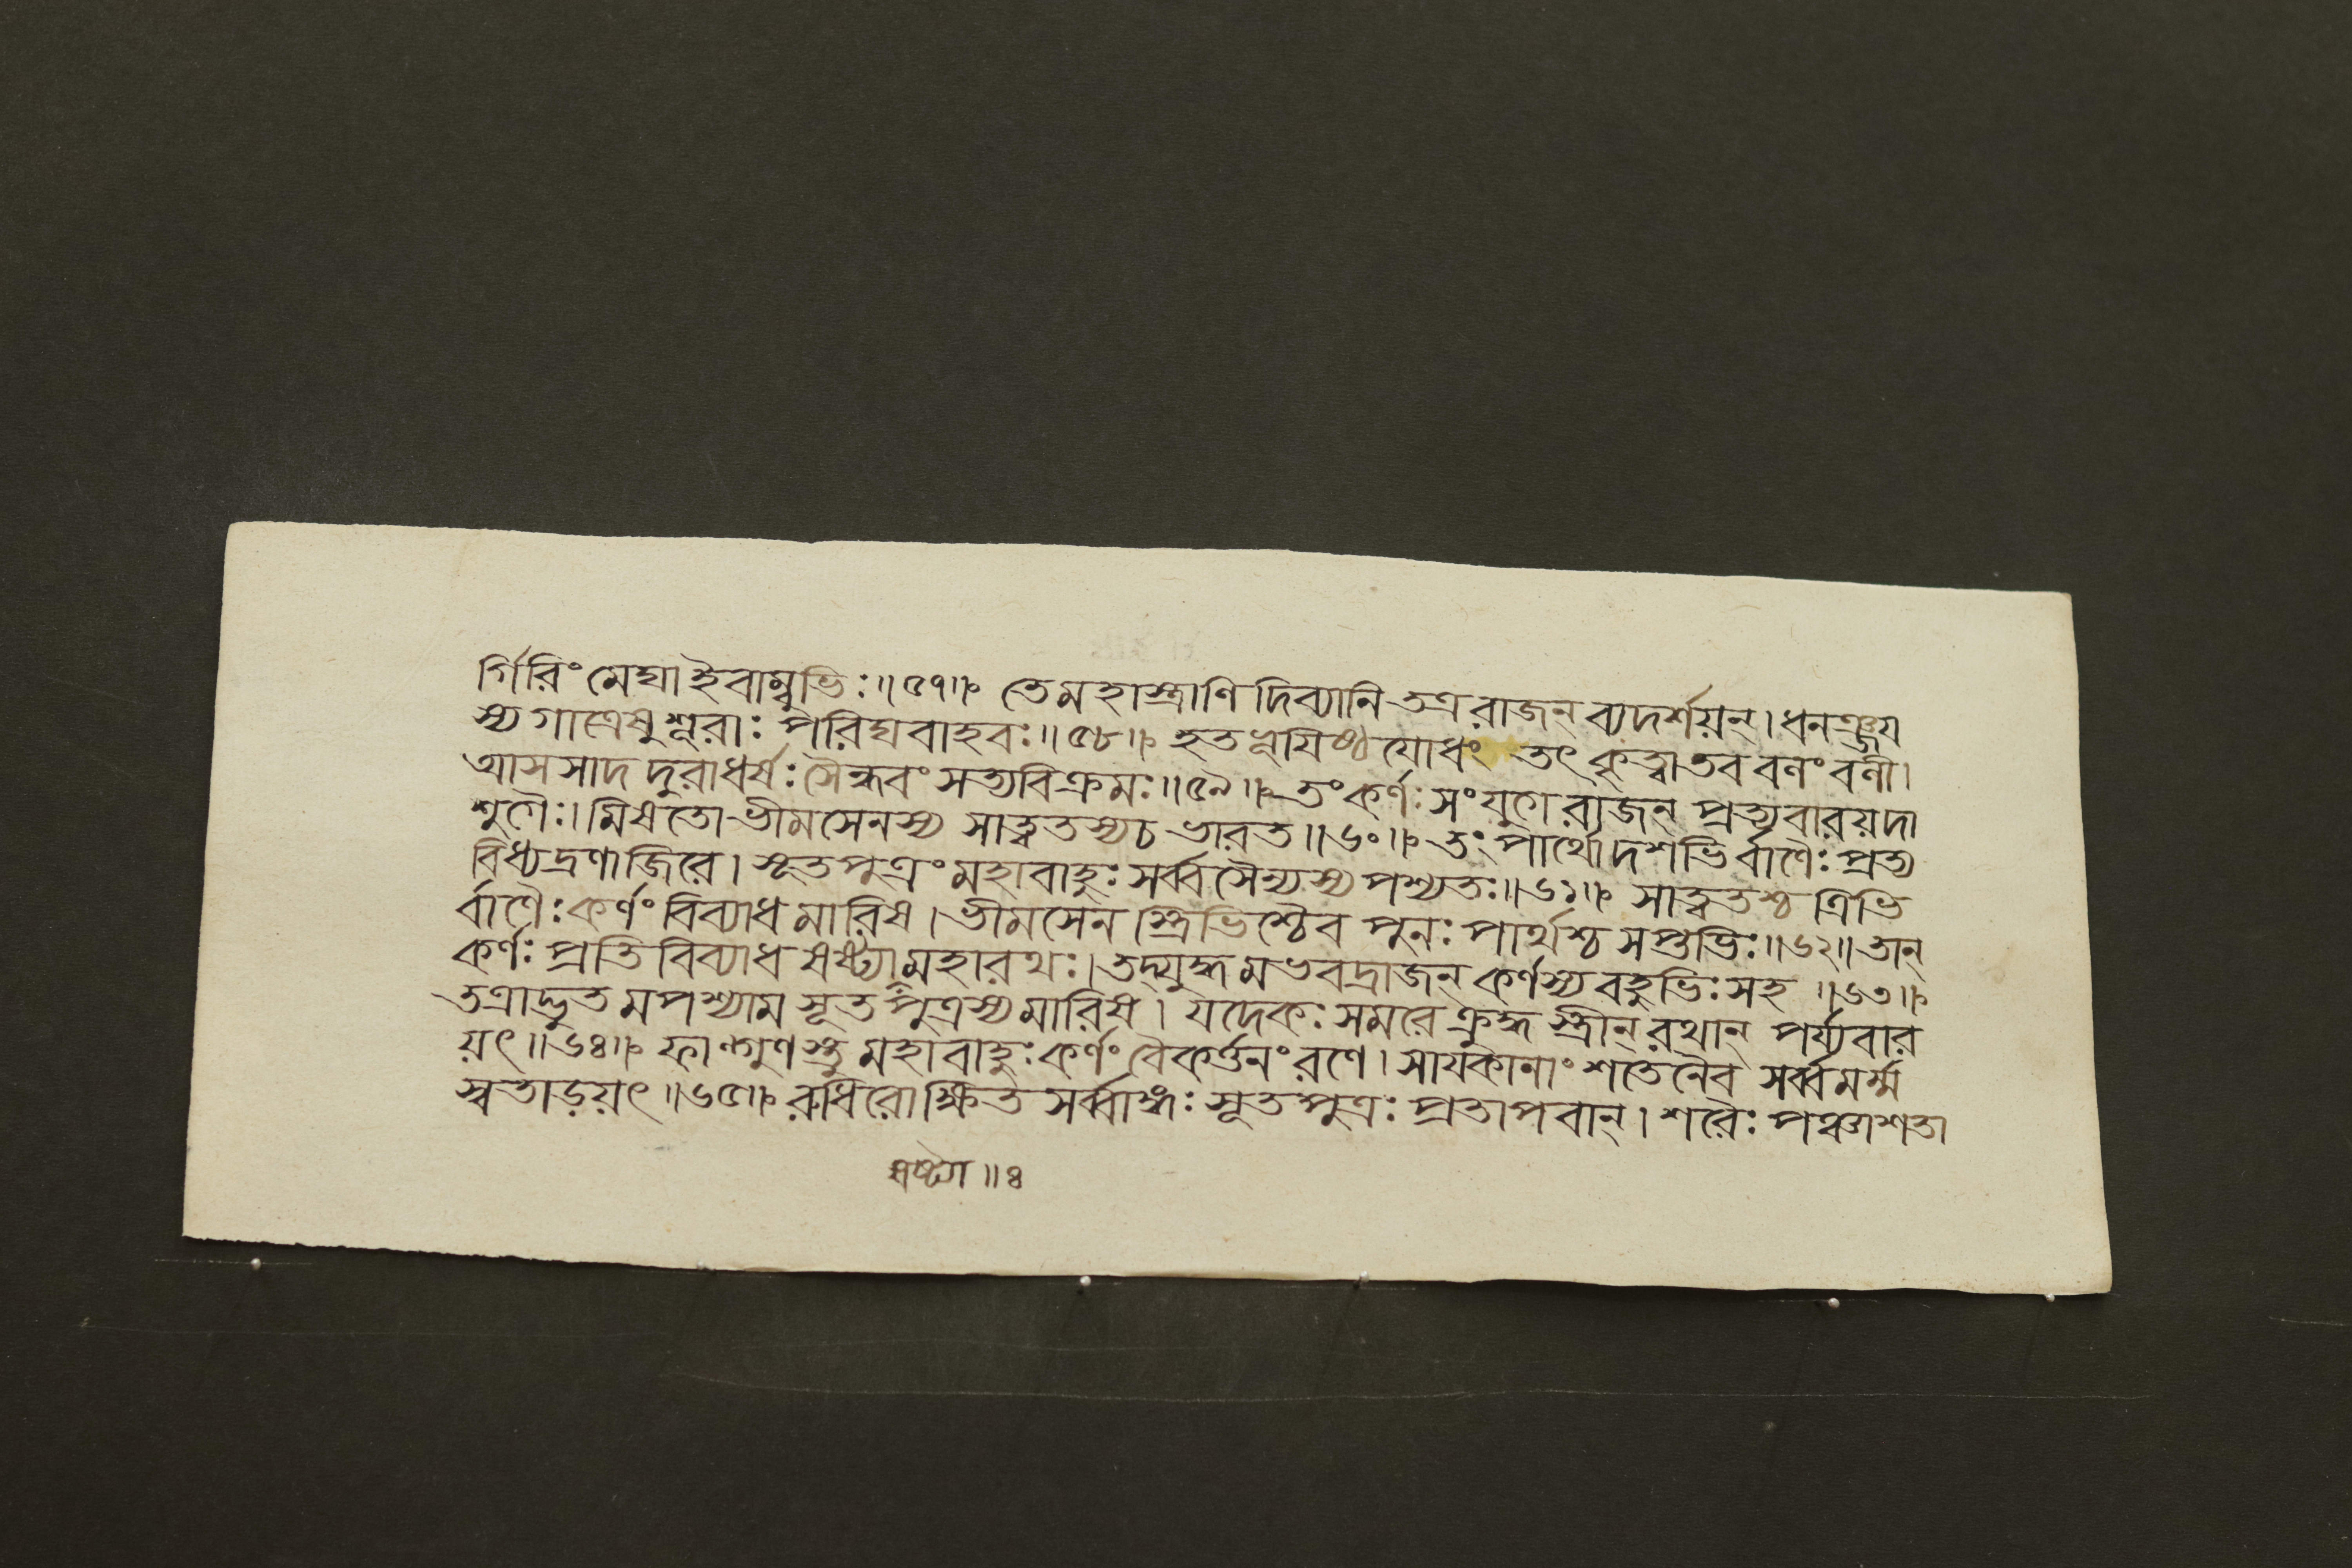 র্গিরিং মেঘা ইবাম্বুভিঃ॥৫৭॥ তে মহাস্ত্রাণি দিব্যানি তত্র রাজন্ ব্যদর্শয়ন্। ধনঞ্জয
স্য গাত্রেষু শূরাঃ পরিঘবাহবঃ॥৫৮॥ হতভূযিষ্ঠযোধং তৎ কৃত্বা তব বলং বলী।
আসসাদ দুরাধর্ষঃ সৈন্ধবং সত্যবিক্রমঃ॥৫৯॥ তং কর্ণঃ সংযুগে রাজন্ প্রত্যবারয়দা
শুগৈঃ। মিষতো ভীমসেনস্য সাত্বতস্য চ ভারত॥৬০॥ তং পার্থো দশভির্বাণৈঃ প্রত্য
বিধ্যদ্রণাজিরে। সূতপুত্রং মহাবাহুঃ সর্ব্বসৈন্যস্য পশ্যতঃ॥৬১॥ সাত্বতশ্চ ত্রিভি
র্বাণৈঃ কর্ণং বিব্যাধ মারিষ। ভীমসেনস্ত্রিভিশ্চৈব পুনঃ পার্থশ্চ সপ্তভিঃ॥৬২॥ তান্
কর্ণঃ প্রতিবিব্যাধ ষষ্ট্যা মহারথঃ। তদ্যুদ্ধমভবদ্রাজন্ কর্ণস্য বহুভিঃ সহ॥৬৩॥
তত্রাদ্ভুতমপশ্যাম সূতপুত্রস্য মারিষ। যদেকঃ সমরে ক্রুদ্ধস্ত্রীন্ রথান্ পর্য্যবার
য়ৎ॥৬৪॥ ফাল্গুণস্তু মহাবাহুঃ কর্ণং বৈকর্ত্তনং রণে। সাযকানাং শতেনৈব সর্ব্বমর্ম্ম
স্বতাড়য়ৎ॥৬৫॥ রুধিরোক্ষিতসর্ব্বাঙ্গঃ সূতপুত্রঃ প্রতাপবান্। শরৈঃ পঞ্চাশতা
ষষ্ট্যা॥৪